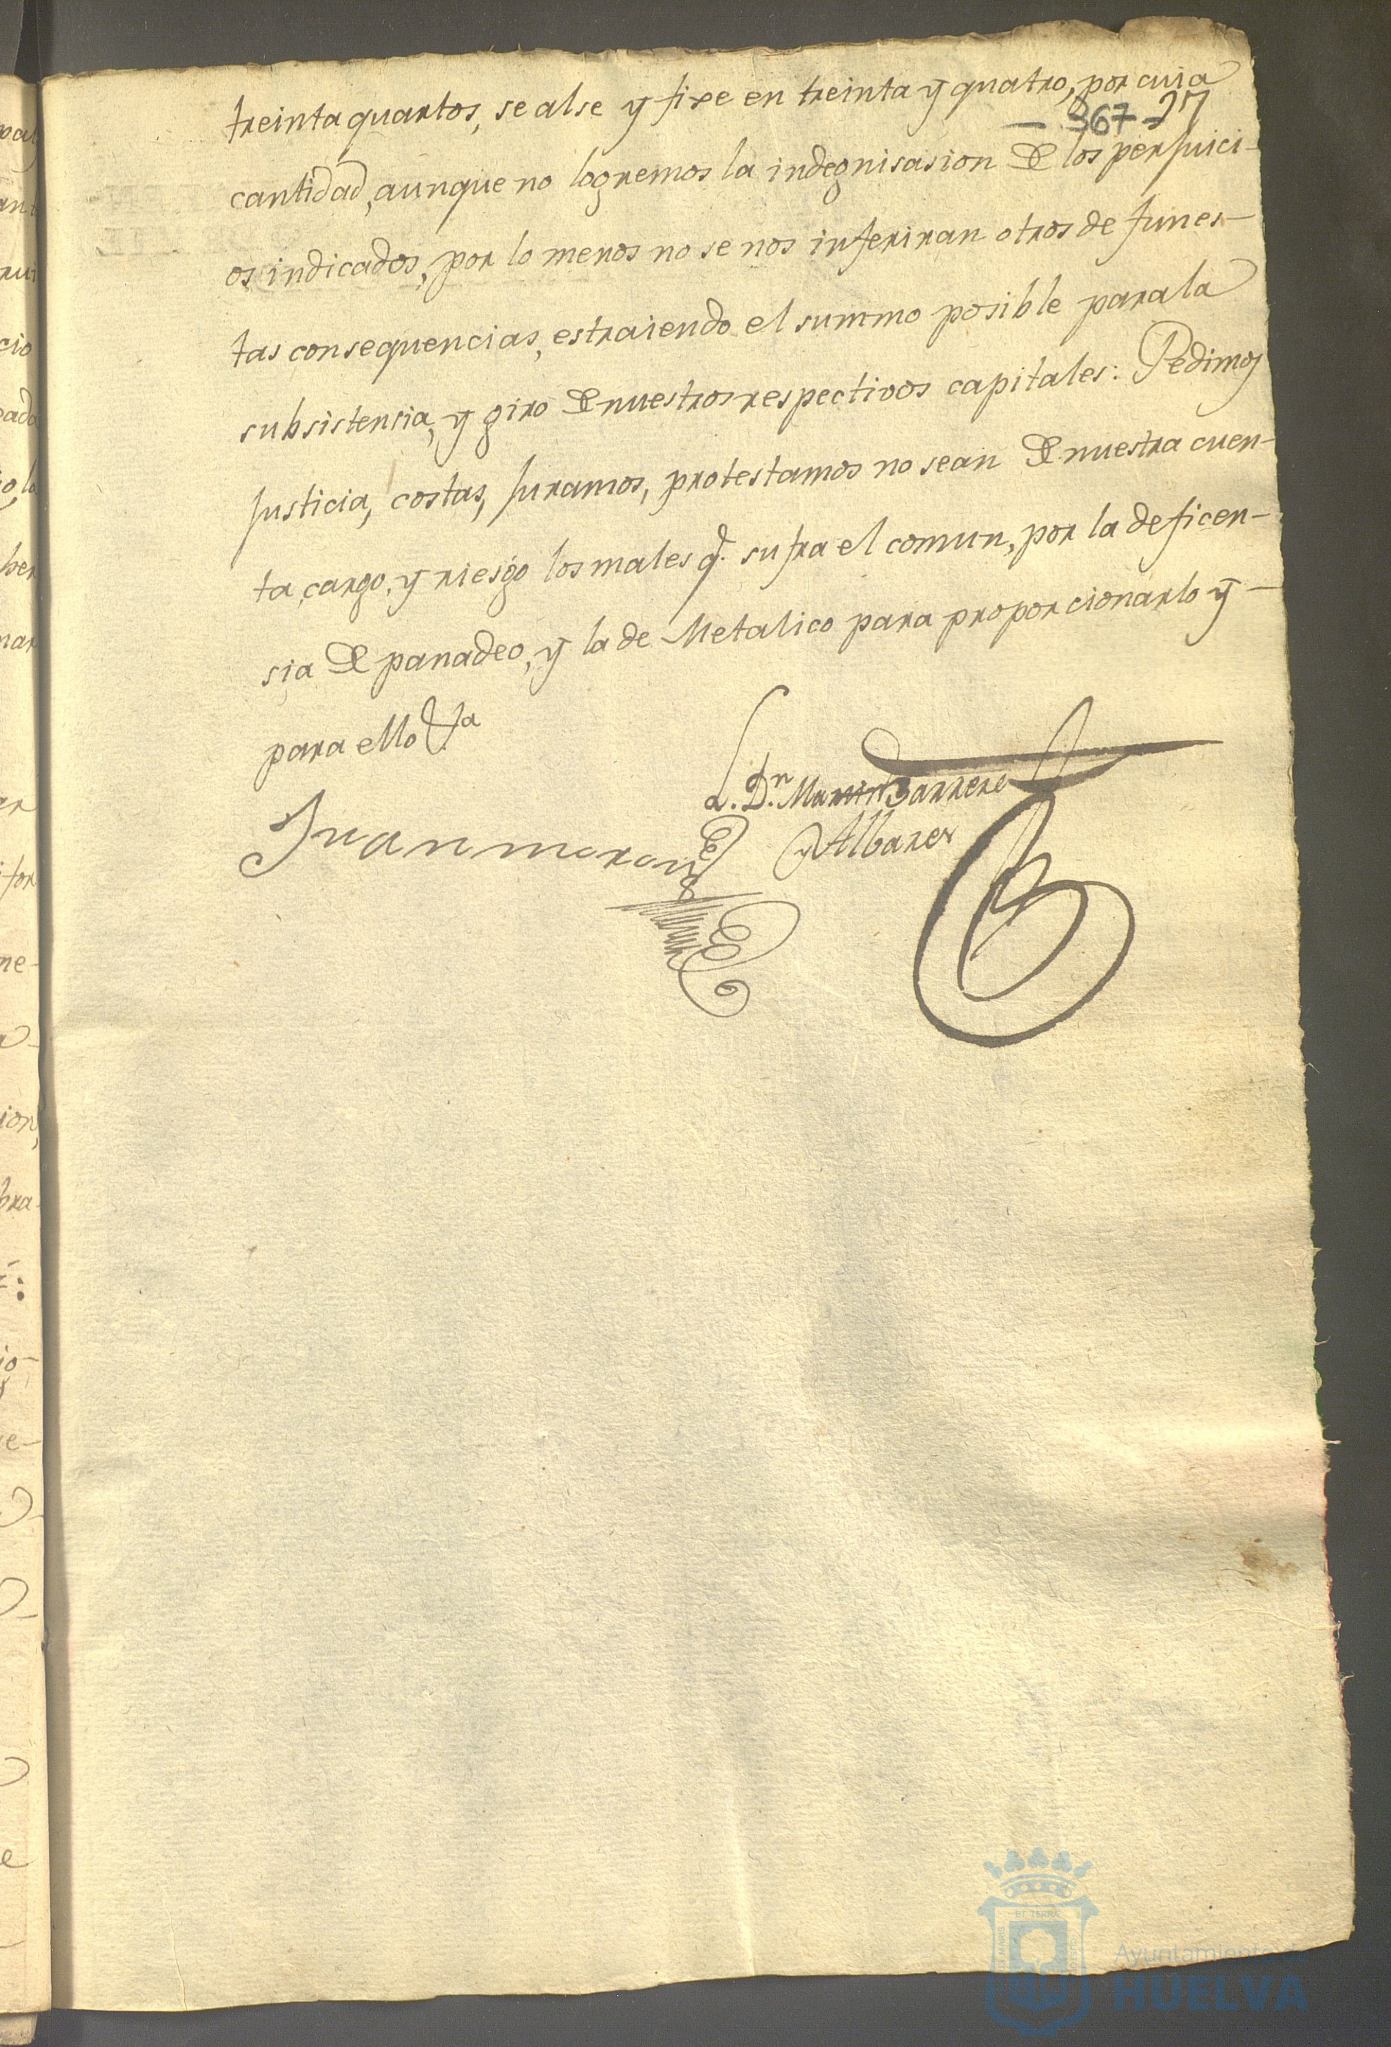 treinta quartos, se alse y fixe en treinta y quatro, por cuia
367 - 27
cantidad, aunque no logremos la indegnisasion de los perjuici-
os indicados, por lo menos no se nos inferiran otros de funes-
tas consequencias, estraiendo el summo posible para la
subsistensia, y giro de nuestros respectivos capitales: Pedimos
Justicia, costas, Juramos, protestamos no sean de nuestra cuen-
ta, cargo, y riesgo los males q.e sufra el comun, por la deficen-
sia de panadeo, y la de Metalico para proporcionarlo y
para ello V.a
L. Dn. Martin Barrera
y Albarez
Juan moreno
Ayuntamiento de
HUELVA